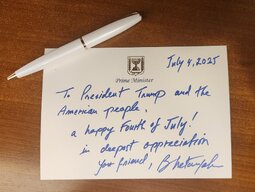 July 4, 2025
Prime Minister
To President Trump and the
American people,
a happy Fourth of July!
in deepest appreciation
your friend, B Netanyahu